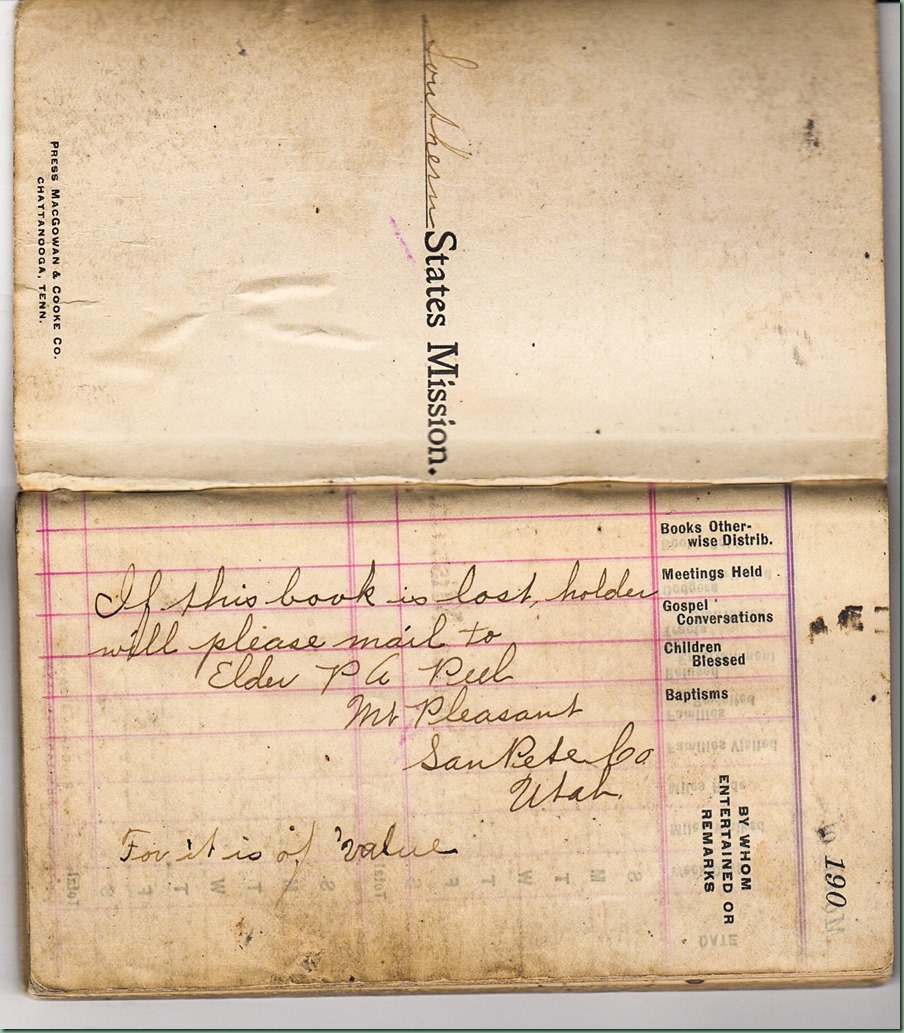 Southern States Mission.
PRESS MACGOWAN & COOKE CO.
CHATTANOOGA, TENN.
Books Other-
wise Distrib.
Meetings Held
Gospel
Conversations
Children
Blessed
Baptisms
BY WHOM
ENTERTAINED OR
REMARKS
190
If this book is lost, holder
will please mail to
Elder P A Peel
Mt Pleasant
San Pete Co
Utah.
For it is of value